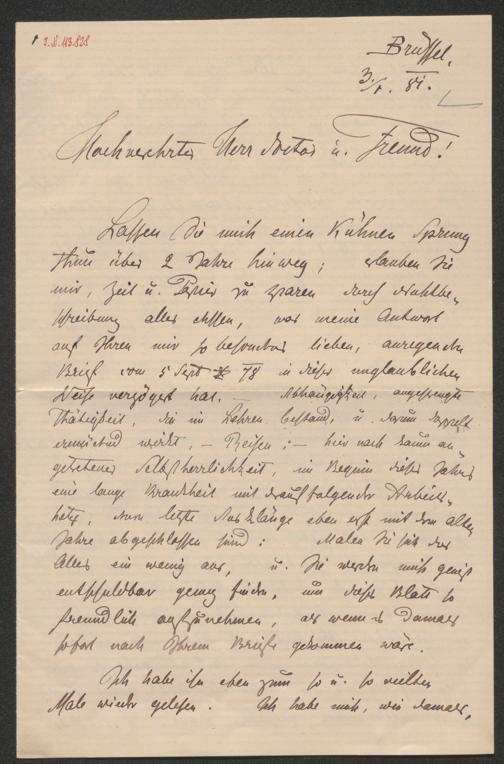 I.N. 113.828
Brüssel,
3/I. 81.
Hochverehrter Herr Doctor u. Freund!
Lassen Sie mich einen kühnen Sprung
thun über 2 Jahre hinweg; erlauben Sie
mir, Zeit u. Papier zu sparen durch
alles dessen, was meine Antwort
auf Ihren mir so besonders lieben, anregenden
Brief vom 5 Sept 78 in dieser unglaublichen
Weise verzögert hat. – Abhängigkeit, angestrengte
Thätigkeit, die im Lehren bestand, u. darum doppelt
ermüdend wirkt, – Reisen; – hiernach kaum an-
getretene Selbstherrlichkeit, im Beginn dieses Jahres
eine lange Krankheit mit darauffolgender Arbeits-
hätz, deren letzte Ausklänge eben erst mit dem alten
Jahre abgeschlossen sind: Malen Sie sich das
Alles ein wenig aus, u. Sie werden mich gewiß
entschuldbar genug finden, um dieses Blatt so
freundlich aufzunehmen, als wenn es damals
sofort nach Ihrem Briefe gekommen wäre.
Ich habe ihn eben zum so u. so vielten
Male wieder gelesen. Ich habe mich, wie damals,